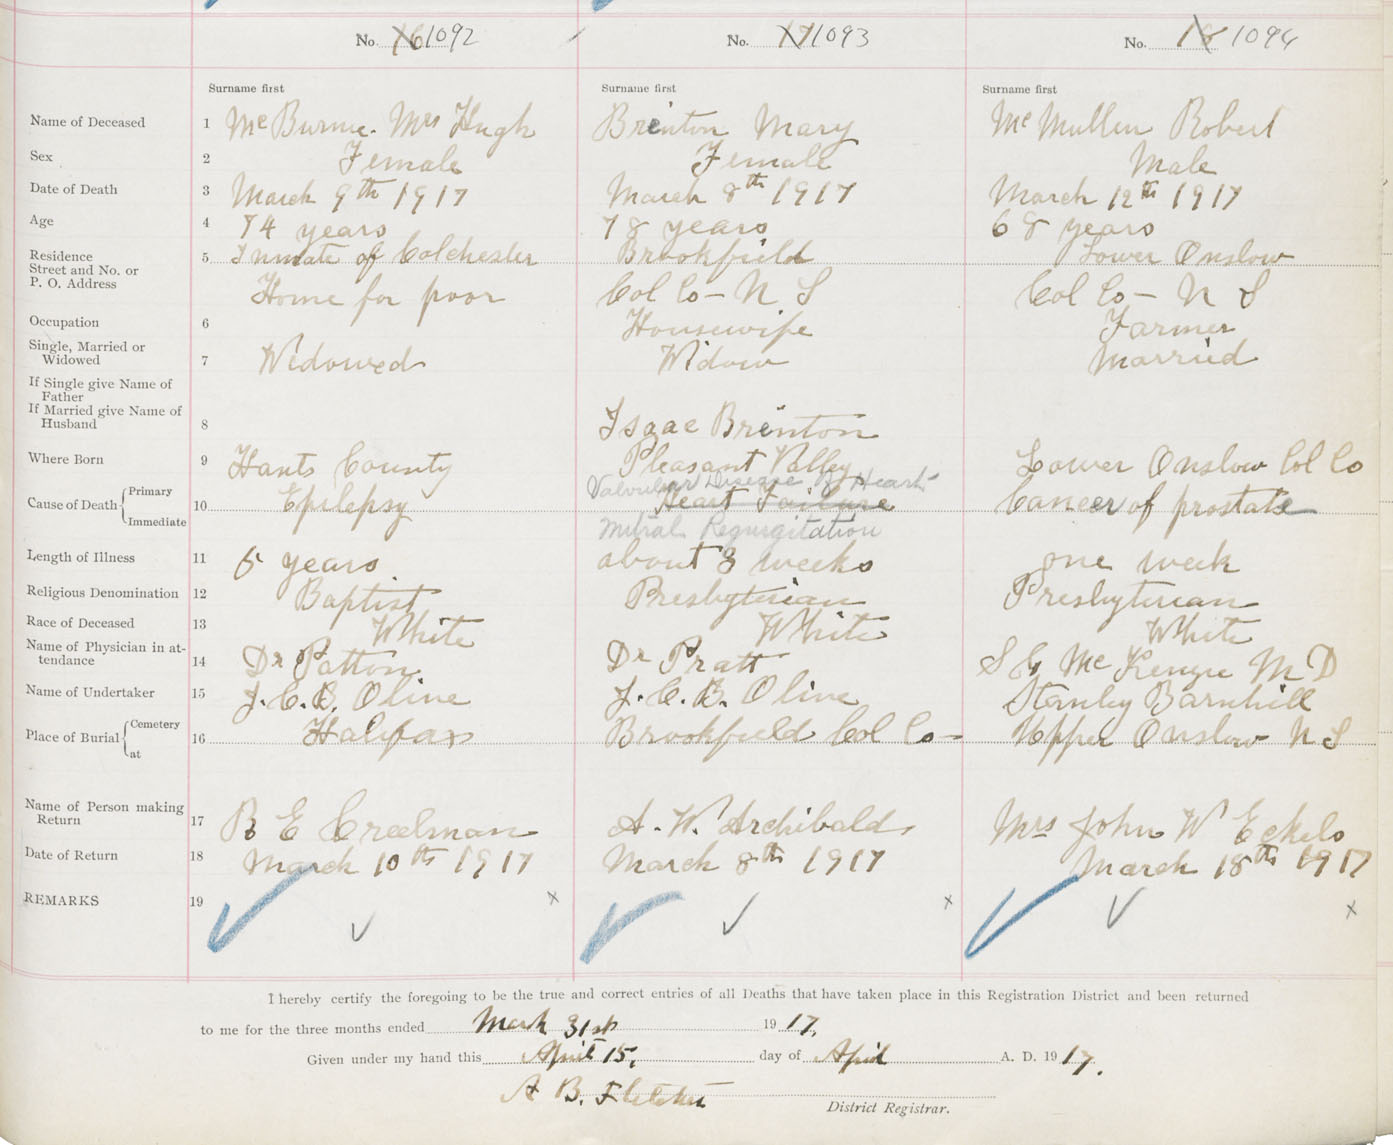 No. 16 1092 No. 17 1093 No. 18 1094
Surname first Surname first Surname first
Name of Deceased 1 McBurnie. Mrs Hugh Brenton Mary McMullen Robert
Sex 2 Female Female Male
Date of Death 3 March 9th 1917 March 8th 1917 March 12th 1917
Age 4 74 years 78 years 68 years
Residence 5 Inmate of Colchester Brookfield Lower Onslow
Street and No. or
P. O. Address Home for poor Col Co - N S Col Co - N S
Occupation 6 Housewife Farmer
Single, Married or
Widowed 7 Widowed Widow Married
If Single give Name of
Father
If Married give Name of
Husband 8 Isaac Brenton
Where Born 9 Hants County Pleasant Valley Lower Onslow Col Co
Valvular Disease of Heart
Cause of Death { Primary
Immediate 10 Epilepsy Heart Failure Cancer of prostate
Mitral Regurgitation
Length of Illness 11 5 years about 3 weeks one week
Religious Denomination 12 Baptist Presbyterian Presbyterian
Race of Deceased 13 White White White
Name of Physician in at-
tendance 14 Dr Patton Dr Pratt McKenzie M D
Name of Undertaker 15 J. C. B. Olive J. C. B. Olive Stanley Barnhill
Place of Burial { Cemetery
at 16 Halifax Brookfield Col Co - Upper Onslow N S
Name of Person making
Return 17 B E Creelman A. W. Archibald Mrs John W Eckels
Date of Return 18 March 10th 1917 March 8th 1917 March 18th 1917
REMARKS 19 ✓ ✓ x ✓ ✓ x ✓ ✓ x
I hereby certify the foregoing to be the true and correct entries of all Deaths that have taken place in this Registration District and been returned
to me for the three months ended March 31st 1917.
Given under my hand this April 15, day of April A. D. 1917.
A B. Fletcher
District Registrar.